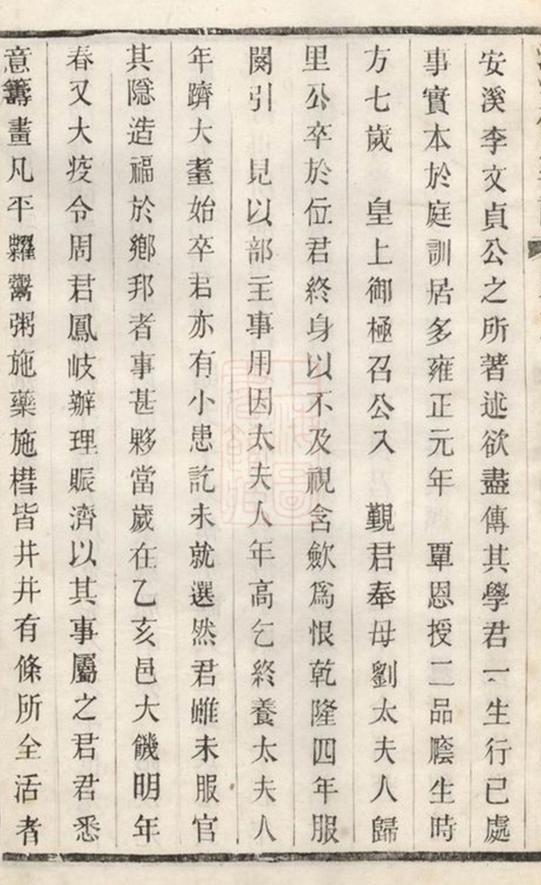 安溪李文貞公之所著述欲盡傳其學君一生行已處
事實本於庭訓居多雍正元年　覃恩授二品廕生時
方七歲　皇上御極召公入　覲君奉母劉太夫人歸
里公卒於位君終身以不及視含歛爲恨乾隆四年服
闋引　見以部主事用因太夫人年高乞終養太夫人
年躋大耋始卒君亦有小患訖未就選然君雖未服官
其隱造福於鄉邦者事甚夥當歲在乙亥邑大饑明年
春又大疫令周君鳳岐辦理賑濟以其事屬之君君悉
意籌畫凡平糶鬻粥施藥施槥皆井井有條所全活者